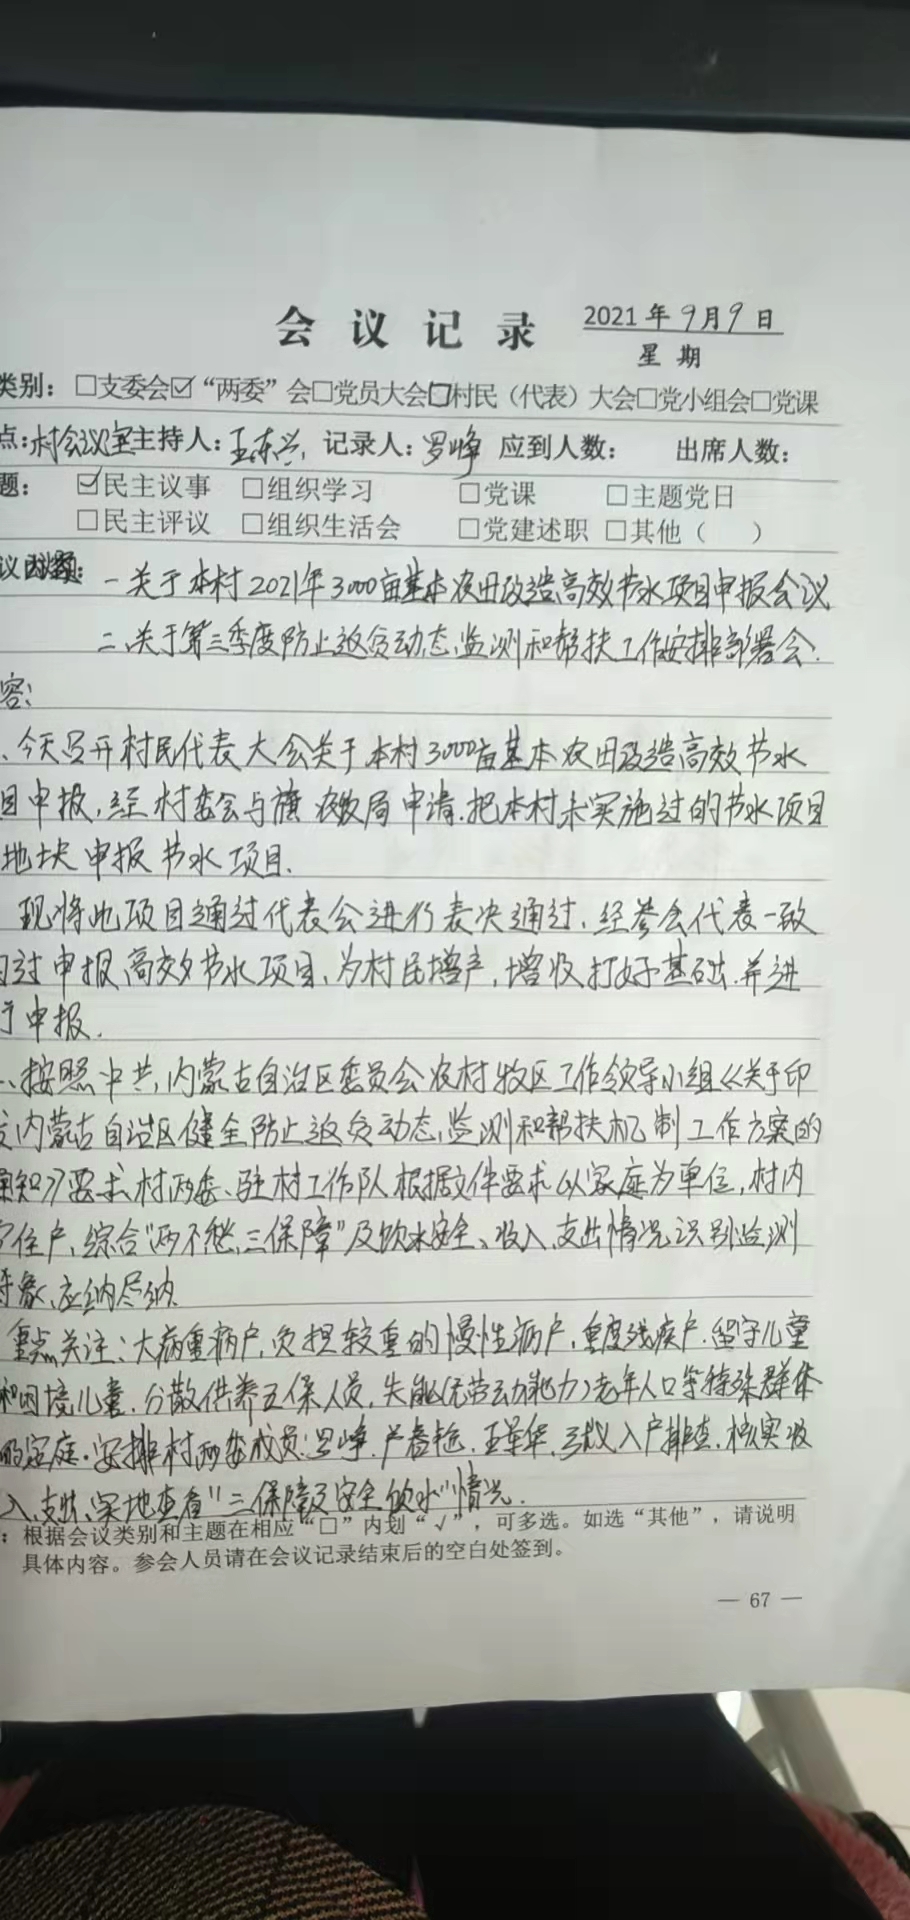 会议记录 2021年9月9日
星期
类别：□支委会☑“两委”会□党员大会□村民（代表）大会□党小组会□党课
点：村会议室主持人：王东兴 记录人：罗峰 应到人数： 出席人数：
题： ☑民主议事 □组织学习 □党课 □主题党日
□民主评议 □组织生活会 □党建述职 □其他（ ）
议题： 一关于本村2021年3000亩基本农田改造高效节水项目申报会议
二、关于第三季度防止返贫动态监测和帮扶工作安排部署会.
容：
、今天召开村民代表大会关于本村3000亩基本农田改造高效节水
目申报，经村委会与旗农牧局申请.把本村未实施过的节水项目
地块申报节水项目.
现将此项目通过代表会进行表决通过，经参会代表一致
过申报高效节水项目、为村民增产，增收打好基础.并进
行申报.
、按照中共内蒙古自治区委员会农村牧区工作领导小组《关于印
发内蒙古自治区健全防止返贫动态监测和帮扶机制工作方案的
通知》要求村两委、驻村工作队根据文件要求以家庭为单位，村内
住户，综合“两不愁三保障”及饮水安全、收入、支出情况识别监测
对象、应纳尽纳.
重点关注：大病重病户，负担较重的慢性病户，重度残疾户.留守儿童
和困境儿童.分散供养五保人员，失能(无劳动能力)老年人口等特殊群体
的家庭.安排村两委成员：罗峰. 入户排查.核实收
入、支出、实地查看“三保障及安全饮水”情况.
：根据会议类别和主题在相应“□”内划“√”，可多选。如选“其他”，请说明
具体内容。参会人员请在会议记录结束后的空白处签到。
— 67 —